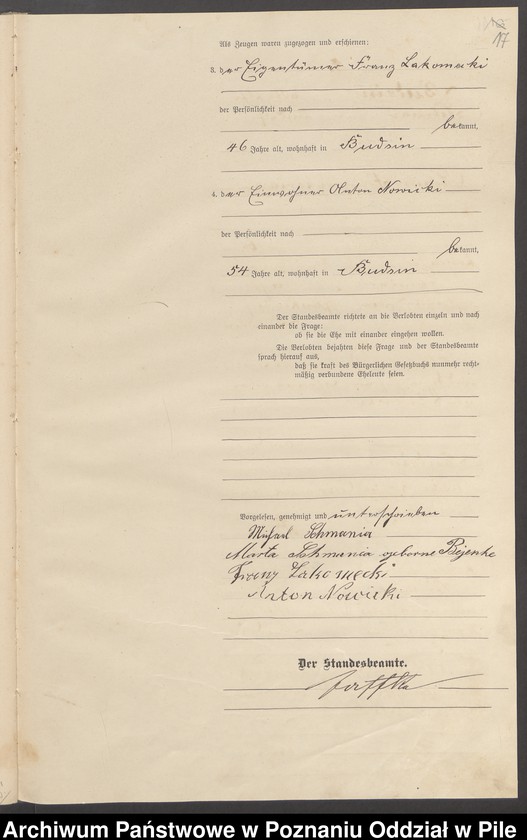 17
Als Zeugen waren zugezogen und erschienen:
3. der Eigentümer Franz Lakomecki
der Persönlichkeit nach
bekannt,
46 Jahre alt, wohnhaft in Budsin
4. der Einwohner Anton Nowicki
der Persönlichkeit nach
bekannt,
54 Jahre alt, wohnhaft in Budsin
Der Standesbeamte richtete an die Verlobten einzeln und nach
einander die Frage:
ob sie die Ehe mit einander eingehen wollen.
Die Verlobten bejahten diese Frage und der Standesbeamte
sprach hierauf aus,
daß sie kraft des Bürgerlichen Gesetzbuchs nunmehr recht-
mäßig verbundene Eheleute seien.
Vorgelesen, genehmigt und unterschrieben
Michael Schmania
Marta Schmania geborne
Franz Lakomecki
Anton Nowicki
Der Standesbeamte.
Archiwum Państwowe w Poznaniu Oddział w Pile